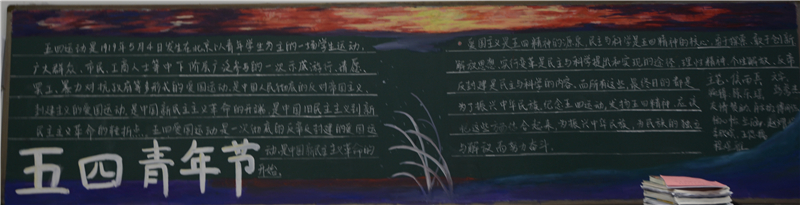 五四运动是1919年5月4日发生在北京以青年学生为主的一场学生运动,
广大群众、市民、工商人士等中下阶层广泛参与的一次示威游行、请愿、
罢工、暴力对抗政府等多形式的爱国运动,是中国人民彻底的反对帝国主义、
封建主义的爱国运动,是中国新民主主义革命的开端,是中国旧民主主义到新
民主主义革命的转折点。五四爱国运动是一次彻底的反帝反封建的爱国运
动,是中国新民主主义革命的
开始。
五四青年节
爱国主义是五四精神的源泉,民主与科学是五四精神的核心,勇于探索、敢于创新、
解放思想、实行变革是民主与科学提出和实现的途径,理性精神、个性解放、反帝
反封建是民主与科学的内容。而所有这些,最终目的都是
为了振兴中华民族。纪念五四运动,发扬五四精神,应该
把这些结合起来,为振兴中华民族,为民族的独立
与解放而努力奋斗。